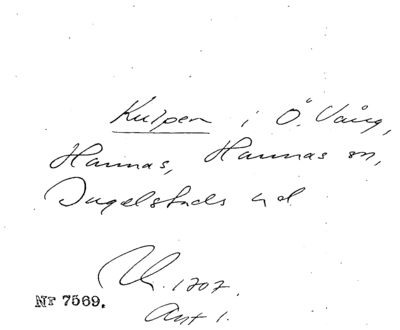 Kulpen i Ö. Vång,
Hannas, Hannas sn,
Ingelstads hd
1707.
Nr 7569.
Akt 1.